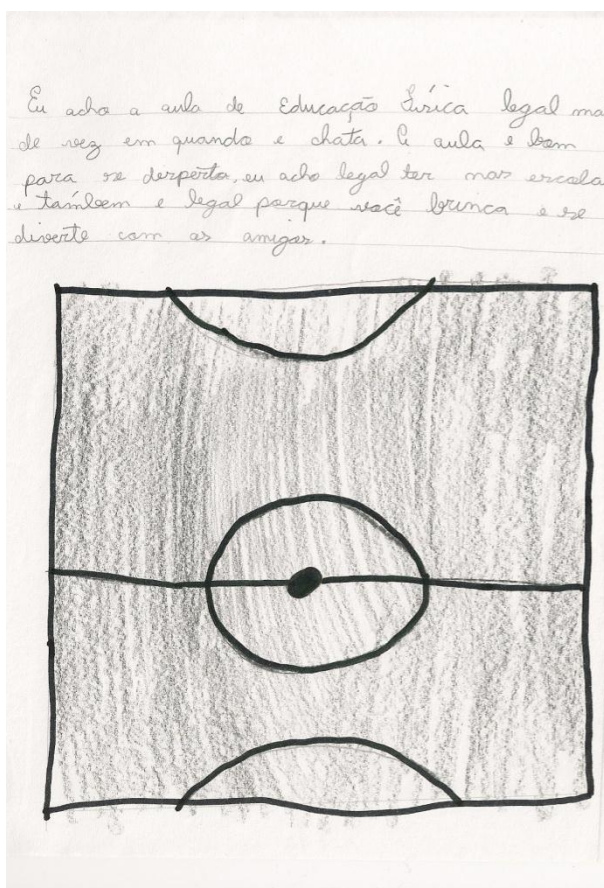 Eu acho a aula de Educação Física legal ma
de vez em quando e chata. A aula e bom
para se desperta, eu acho legal ter nas escola
e também e legal porque você brinca e se
diverte com os amigos.